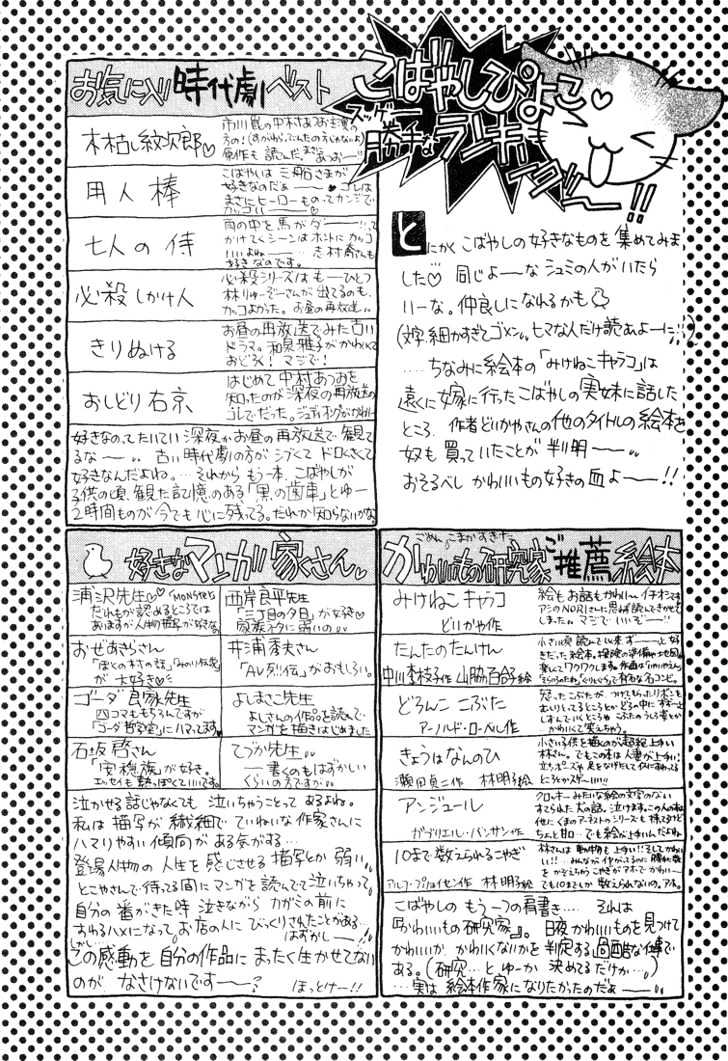 こばやしぴよこ♡
勝手な
ランキング〜!!
とにかく こばやしの好きなものを 集めてみま
した♡ 同じよーな シュミの人がいたら
いーな。仲良しになれるかも
(文字細かすぎてゴメン。ヒマな人だけ読あよーに!!)
……ちなみに絵本の「みけねこキャラコ」は
遠くに嫁に行ったこばやしの実妹に話した
ところ、作者どいかやさんの他のタイトルの絵本を
奴も買っていたことが判明——。
おそるべし かわいいもの好きの血よー!!
お気に入り 時代劇 ベスト
木枯し紋次郎♡
市川崑の中村あつお主演の
用人棒
こばやしは三船さまが
好きなのだぁー
まさにヒーローものってカンジで
カッコいいー
七人の侍
雨の中を馬がダーーーって
かけてくシーンはホントにカッコ
いいよねー 志村喬さんも
好きなのです。
必殺しかけ人
必殺シリーズはもーひとつ
林りゅーぞーさんが出てるのも、
カッコよかった。お昼の再放送
きりぬける
お昼の再放送でみた古い
ドラマ。和泉雅子がかわいくて
おどろく!マジで!
おしどり右京
はじめて中村あつおを
知ったのが深夜の再放送の
コレでだった。
好きなのってたいてい深夜かお昼の再放送で観て
るなー。古い時代劇の方がシブくてドロくさくて
好きなんだよね。…それからもう一本、こばやしが
子供の頃、観た記憶のある「黒の歯車」とゆー
2時間ものが今でも心に残ってる。だれか知らないかな
好きなマンガ家さん
浦沢先生♡
「MONSTER」
だれもが認めるところでは
ありますが人物描写が好きな。
西岸良平先生
「三丁目の夕日」が好き♡
家族ネタに弱いの
おぜあきらさん
「ぼくの村の話」「みのり伝説」
が大好き♡
井浦秀夫さん
「AV烈伝」がおもしろい。
ゴーダ良家先生
四コマももちろんですが
「ゴーダ哲学堂」にハマってます
よしまさこ先生
よしさんの作品を読んで
マンガを描きはじめました
石坂啓さん
「安穏族」が好き。
エッセイも熱っぽくていいです。
てづか先生
—書くのもはずかしい
くらいの方ですが…
泣かせる話じゃなくても 泣いちゃうことってあるよね。
私は描写が繊細で ていねいな作家さんに
ハマりやすい傾向がある気がする…
登場人物の人生を感じさせる描写とか弱い。
とこやさんで待ってる間にマンガを読んでて泣いちゃって
自分の番がきた時 泣きながら カガミの前に
すわるハメになって お店の人に びっくりされたことがある…
はずかしー!!
しかし…
この感動を自分の作品に まったく生かせてない
のが なさけないですー?
ほっとけー!!
ごめん。こまかすぎた
かわいいもの研究家 ご推薦 絵本
みけねこキャラコ
どいかや作
絵もお話もかわいー イチオシです
アシのNORIさんに思わず読んできかせて
しまった マジでいいぞー!!
たんたのたんけん
中川李枝子作 山脇百合子絵
小さい頃 読んでいらい ずーっと好
きだった絵本。探検の準備や地図、
楽しくてワクワクします。
どろんこ こぶた
アーノルド・ローベル作
きょうはなんのひ
瀬田貞二作 林明子絵
小さい子供を描くのが超絶上手い
林さん。でもこの本は人妻が上手い!
アンジュール
ガブリエル・バンサン作
クロッキーみたいな絵の文字のない
すてられた犬の話。泣けます。この人の本は
他にくまのアーネストのシリーズも
10まで数えられるこやぎ
アルフ・プリョイセン作 林明子絵
林さんは動物も上手い!!そしてかわ
いい!!
こばやしのもう一つの肩書き… それは
『かわいいもの研究家』。日夜かわいいものを見つけて
かわいいか かわいくないかを判定する過酷な仕事で
ある。(研究…とゆーか 決めてるだけか…)
…実は 絵本作家になりたかったのだよー